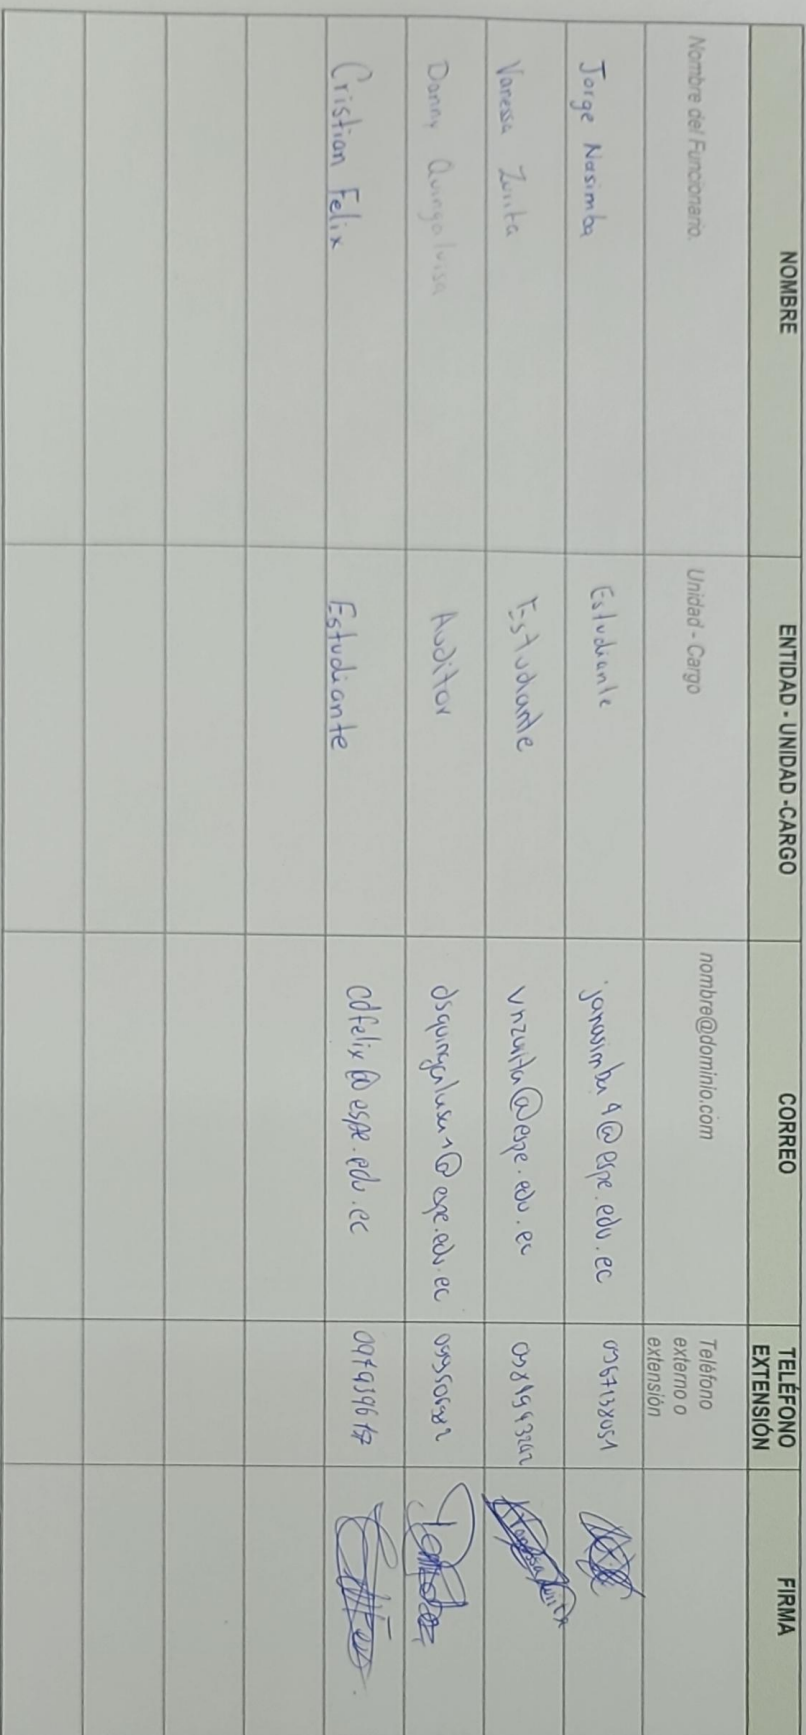 NOMBRE ENTIDAD - UNIDAD -CARGO CORREO TELÉFONO EXTENSIÓN FIRMA
Nombre del Funcionario. Unidad - Cargo nombre@dominio.com Teléfono externo o extensión
Jorge Nasimba Estudiante janasimba9@espe.edu.ec
Vanessa Zurita Estudiante vnzurita@espe.edu.ec
Danny Quingaluisa Auditor
Cristian Felix Estudiante cdfelix@espe.edu.ec